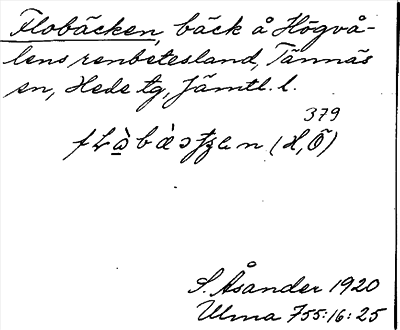 Flobäcken, bäck å Högvå-
lens renbetesland, Tännäs
sn, Hede tg, Jämtl. l.
379
(H, Õ)
S. Åsander 1920
Ulma 755:16:25